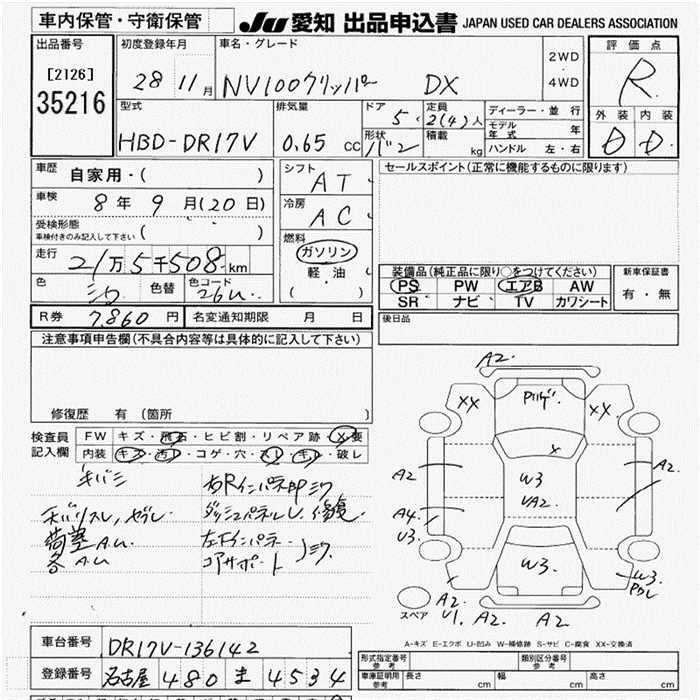 車内保管・守衛保管
JU 愛知 出品申込書 JAPAN USED CAR DEALERS ASSOCIATION
出品番号
[2126]
35216
初度登録年月
28 11月
車名・グレード
NV100クリッパー DX
2WD
・
4WD
評価点
R
外装 内装
D D
型式
HBD-DR17V
排気量
0.65 cc
ドア 5
形状 バン
定員 2(4)人
積載 kg
ディーラー・並行
モデル年式 年
ハンドル 左・右
車歴
自家用・( )
車検
8年 9月(20日)
受検形態
車検付きのみ記入して下さい ( )
走行
21万5千508km
色 シロ 色替 色コード 26U
シフト
AT
冷房
AC
燃料
ガソリン
軽・油
( )
セールスポイント(正常に機能するものに限ります)
装備品(純正品に限り○をつけてください)
PS PW エアB AW
SR ナビ TV カワシート
新車保証書
有・無
R券 7,860円 名変通知期限 月 日
後日品
注意事項申告欄(不具合内容等は具体的に記入して下さい)
修復歴 有(箇所 )
検査員
記入欄
FW キズ・飛石・ヒビ割・リペア跡・X要
内装 キズ・汚れ・コゲ・穴・スレ・キレ・破レ
キバミ
荷室A.U.
各A.U.
右Rインパネ部シワ
ダッシュパネルU、修復
左Fインパネ
コアサポート シワ
A2
XX
XX
A2
A4
U3
W3
UA2
A2
W3
W3
A2
U1
A2
A2
スペア
A-キズ E-エクボ U-凹み W-補修跡 S-サビ C-腐食 XX-交換済
車台番号 DR17V-136142
登録番号 名古屋 480 ま 4534
形式指定番号 参考
類別区分番号 参考
車庫証明用 参考 長さ cm 幅 cm 高さ cm